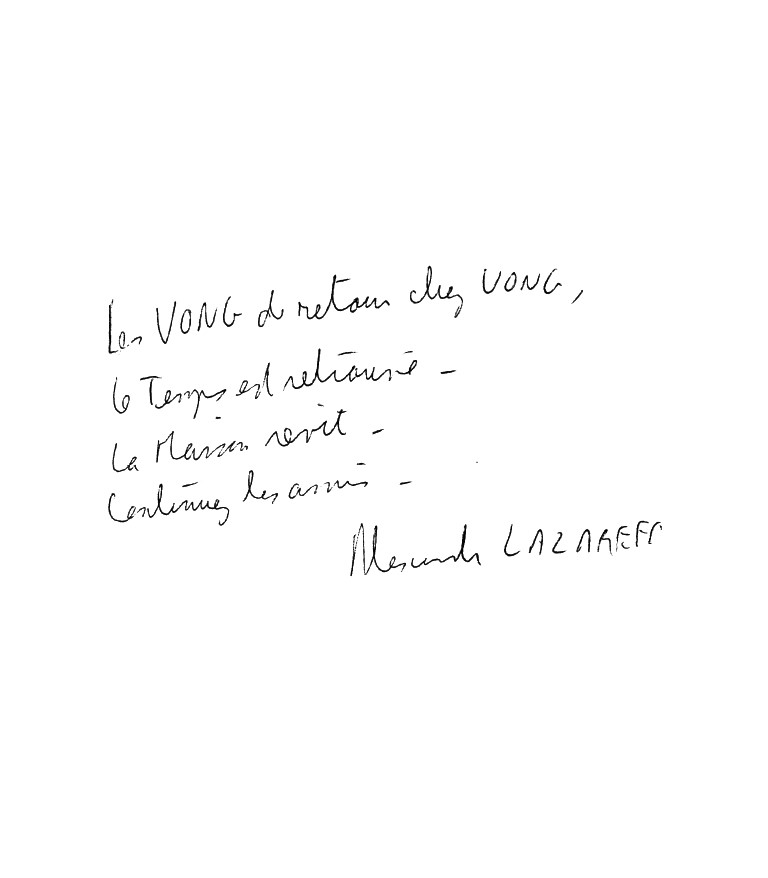 Les VONG de retour chez VONG,
le Temps est retrouvé -
La Maison revit -
Continuez les amis -
Alexandre LAZAREFF